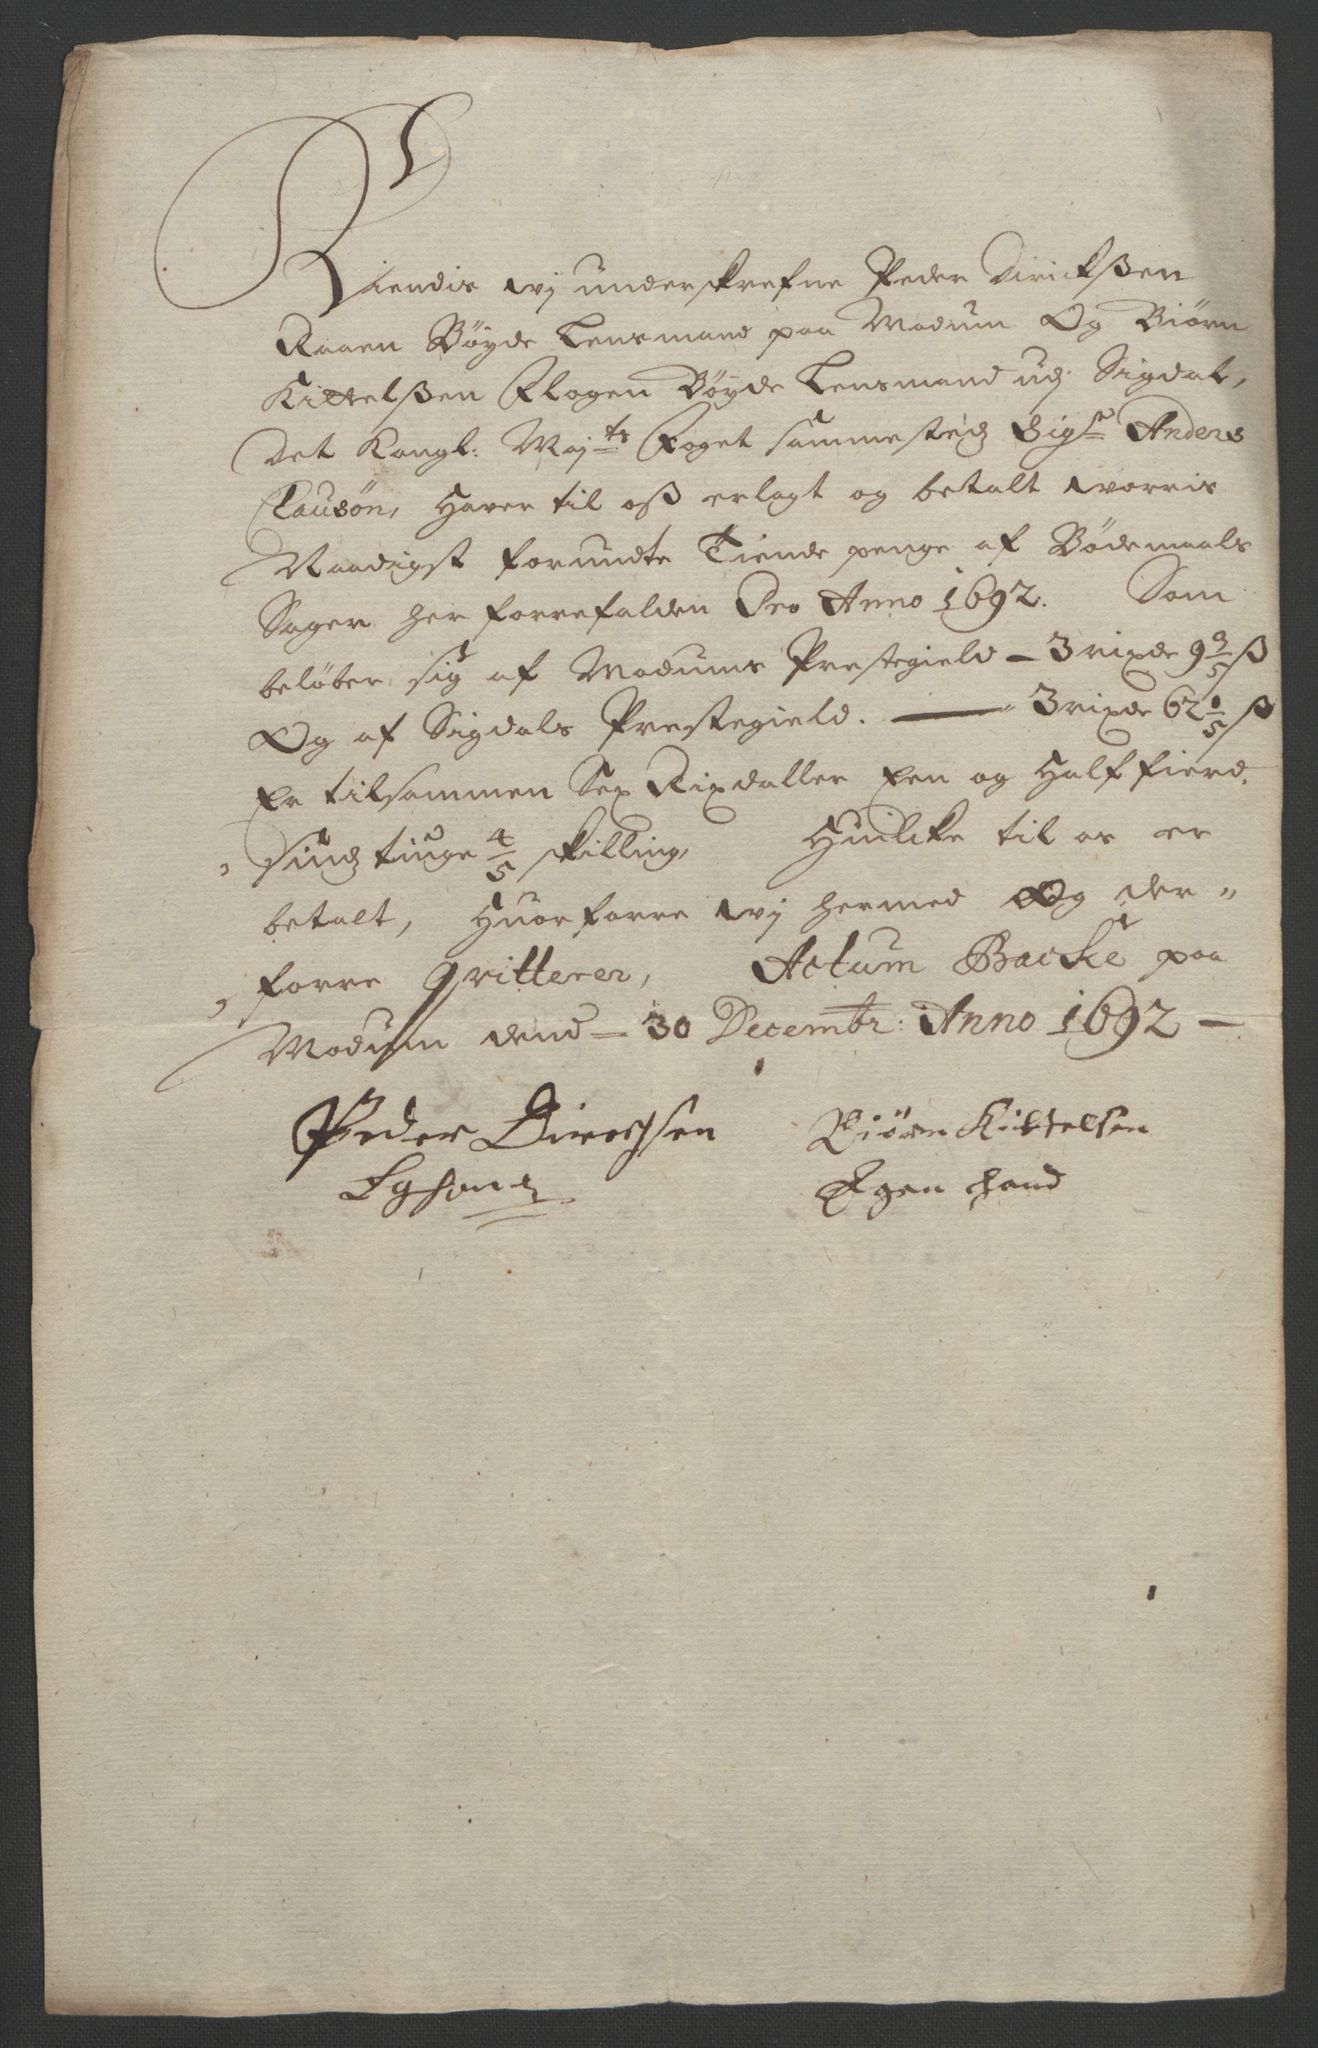 Kiendis wj underskrefne Peder Dirichßen
Raaen Böyde Lensmand paa Modum Og Biörn
Kittelßen Flagen Böyde Lensmand udj Sigdal,
Det Kongl: Maj^ts Foget sammestedz Sig^r Anders
Clausön, Hafver til oß erlagt og betalt worris
Naadigst forundte Tiende penge af Bödemaals
Sager her forrefalden Pro Anno 1692. Som
belöber sig af Modums Prestegield - 3 rixdr 9 3/5 ß
Og af Sigdals Prestegield. — 3 rixdr 62 1/5 ß
Er tilsammen Sex Rixdaller Een og Half fierd,
sindz tiuge 4/5 skilling, Huilcke til os er
betalt, Huorforre wj hermed Og der"
forre qvitterer, Actum Backe paa
Modum dend - 30 Decembr: Anno 1692 —
Peder Dirochsen Biörn Kittelsen
Eghandz Egen hand